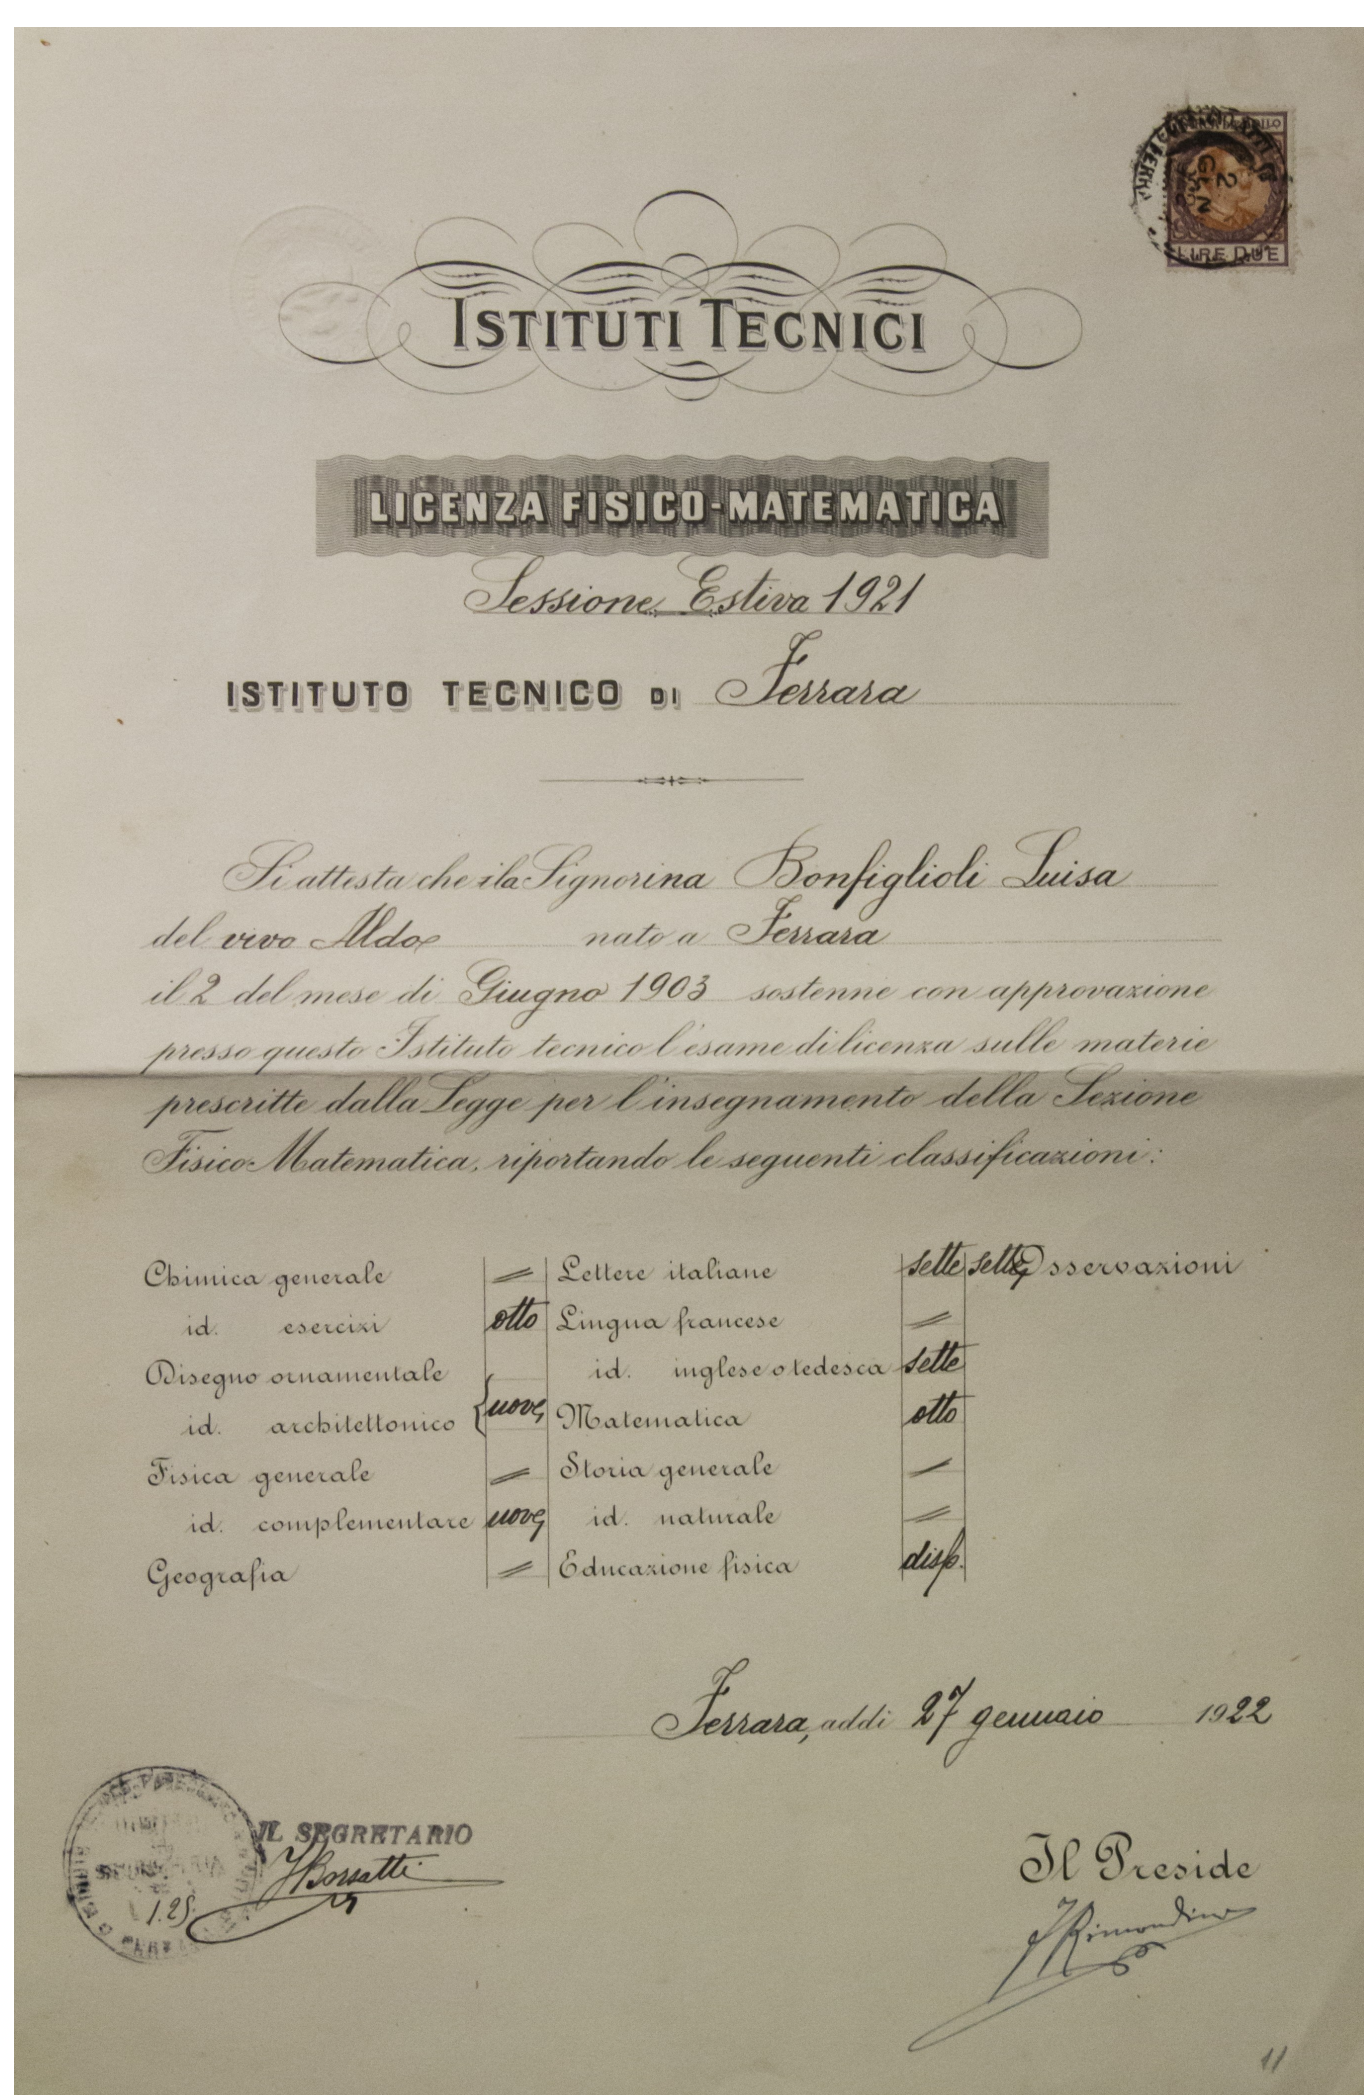 LIRE DUE
2
GEN
ISTITUTI TECNICI
LICENZA FISICO-MATEMATICA
Sessione Estiva 1921
ISTITUTO TECNICO DI Ferrara
Si attesta che il la Signorina Bonfiglioli Luisa
del vivo Aldo nato a Ferrara
il 2 del mese di Giugno 1903 sostenne con approvazione
presso questo Istituto tecnico l'esame di licenza sulle materie
prescritte dalla Legge per l'insegnamento della Sezione
Fisico-Matematica, riportando le seguenti classificazioni:
Chimica generale = Lettere italiane sette sette Osservazioni
id. esercizi otto Lingua francese =
Disegno ornamentale id. inglese o tedesca sette
id. architettonico nove Matematica otto
Fisica generale = Storia generale =
id. complementare nove id. naturale =
Geografia = Educazione fisica disp.
Ferrara, addì 27 gennaio 1922
IL SEGRETARIO
Il Preside
1.25
11